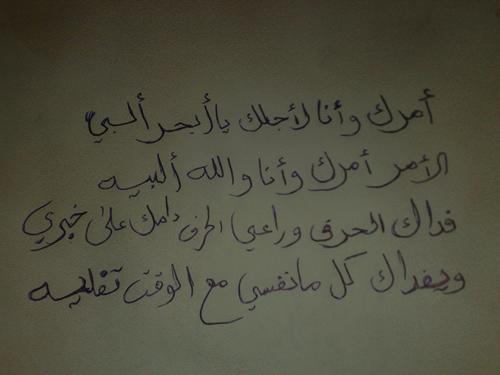 أمرك وأنا لأجلك يا أبحر ألبي
الأمر أمرك وأنا والله ألبيه
فداك الحرف وراعي الحرف دامك على خبري
ويفداك كل ما نفسي مع الوقت تغليه